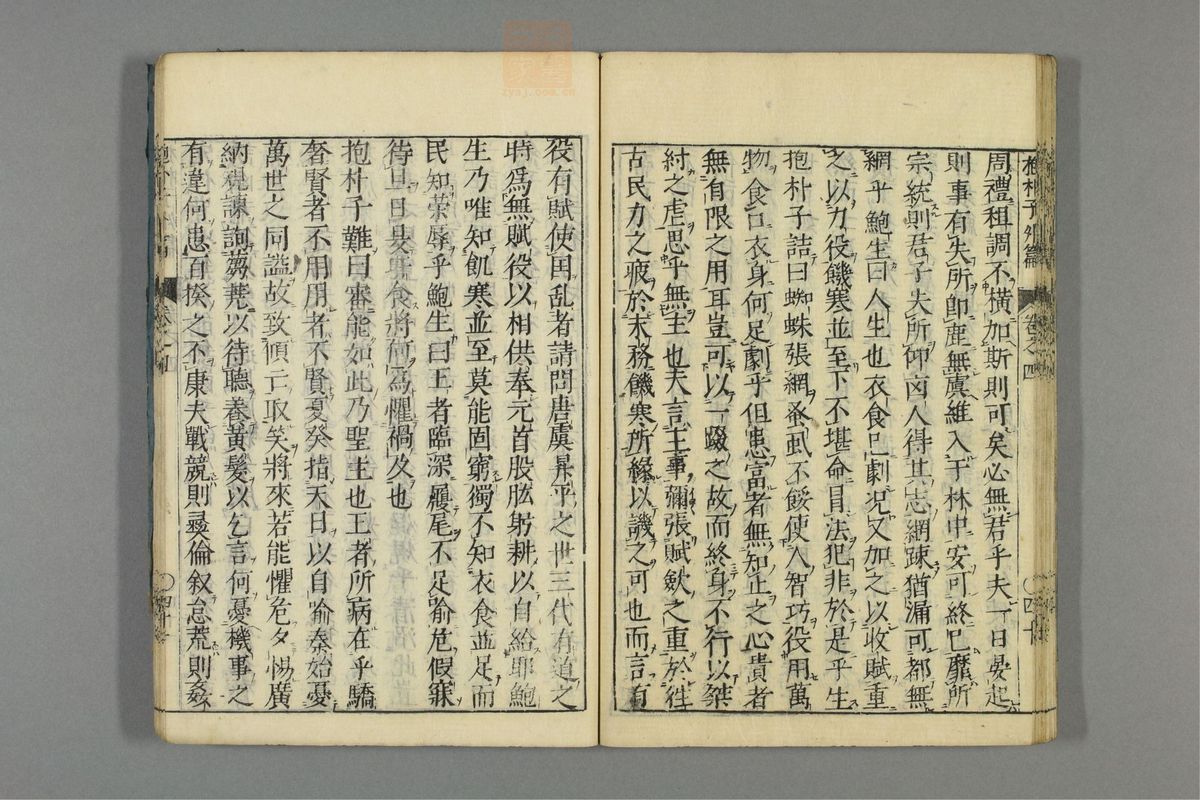 抱朴子外篇 卷之四
周禮租調不橫加斯則可矣必無君乎夫一日晏起
則事有失所卽鹿無虞維入于林中安可終已靡所
宗統則君子失所仰凶人得其志網踈猶漏可都無
網乎鮑生曰人生也衣食已劇况又加之以收賦重
之以力役饑寒並至下不堪命冐法犯非於是乎生
抱朴子詰曰蜘蛛張網蚤虱不餒使人智巧役用萬
物食口衣身何足劇乎但患富者無知止之心貴者
無有限之用耳豈可以一蹶之故而終身不行以桀
紂之虐思乎無主也夫言主事彌張賦歛之重於徃
古民力之疲於末務饑寒所緣以譏之可也而言有
役有賦使囯乱者請問唐虞昇平之世三代有道之
時爲無賦役以相供奉元首股肱躬耕以自給耶鮑
生乃唯知飢寒並至莫能固窮獨不知衣食並足而
民知荣辱乎鮑生曰王者臨深履尾不足喻危假寐
待旦日昃旰食將何爲懼禍及也
抱朴子難曰審能如此乃聖主也王者所病在乎驕
奢賢者不用用者不賢夏癸指天日以自喻秦始憂
萬世之同謚故致傾亡取笑將來若能懼危夕惕廣
納規諫詢蒭蕘以待聴養黃髮以乞言何憂機事之
有違何患百揆之不康夫戰兢則彛倫叙怠荒則姦